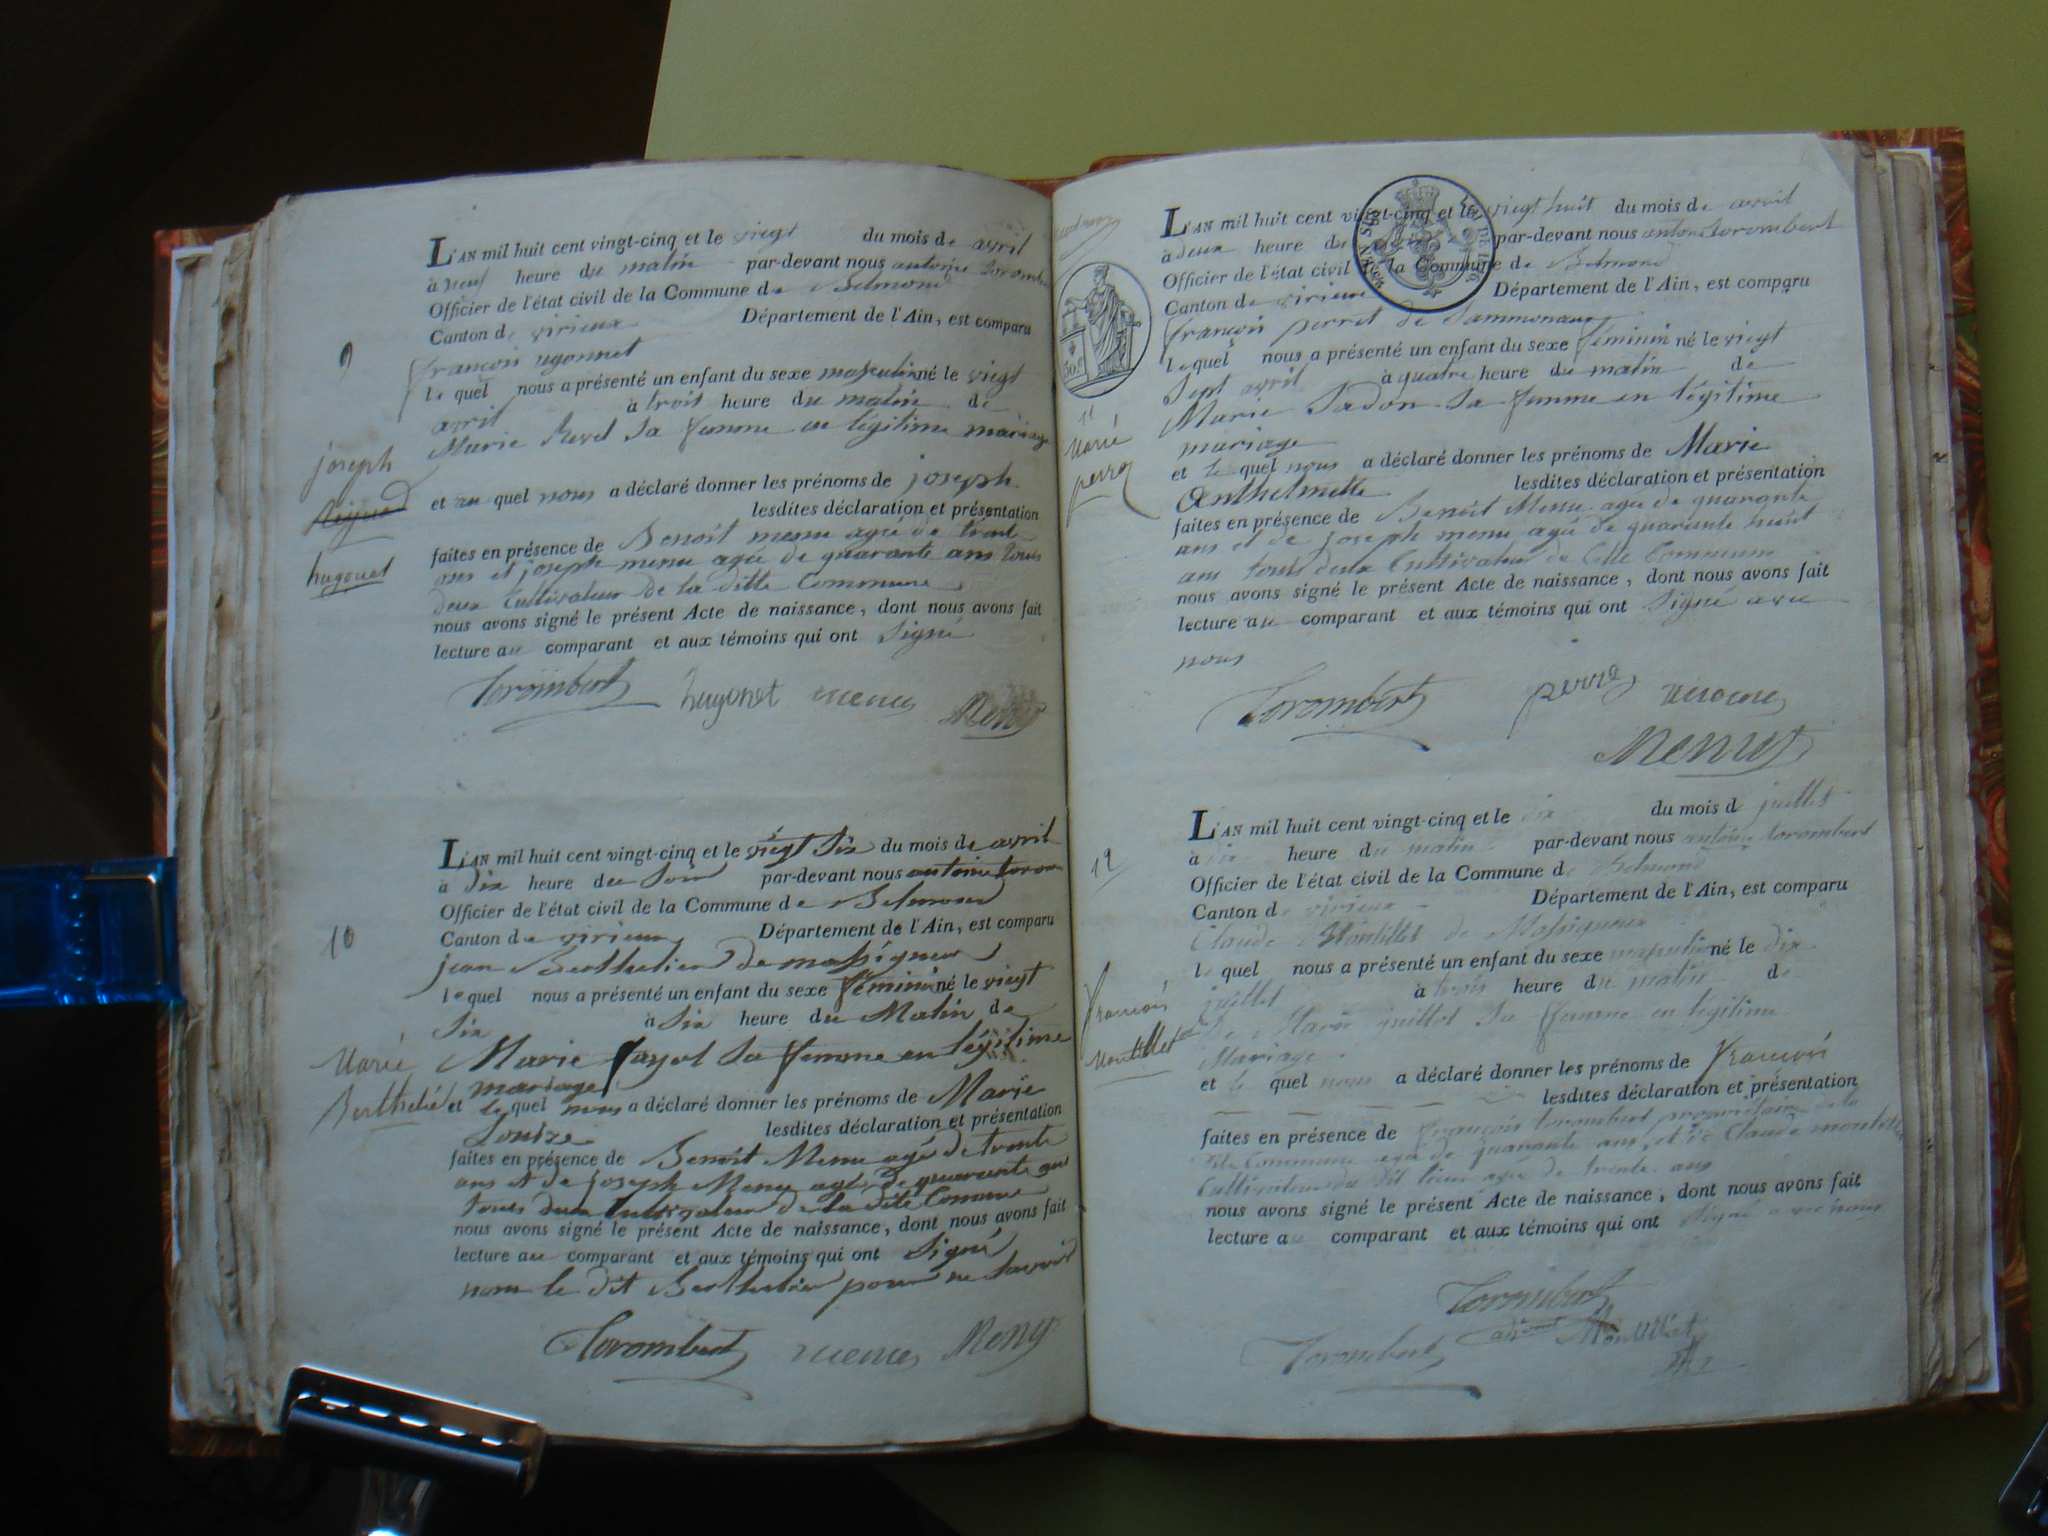 L'AN mil huit cent vingt-cinq et le viegt du mois de avril
à neuf heure du matin par-devant nous antoine torombert
Officier de l'état civil de la Commune de Belmond
Canton de virieux Département de l'Ain, est comparu
9
françois ugonnet
lequel nous a présenté un enfant du sexe masculin né le viegt
avril à troit heure du matin de
Marie Revel sa femme en légitime mariage
joseph
hugonet
et au quel nous a déclaré donner les prénoms de joseph
lesdites déclaration et présentation
faites en présence de Benoit menu agé de trente
ans et joseph menu agée de quarante ans tous
deux Cultivateur de la ditte Commune
nous avons signé le présent Acte de naissance, dont nous avons fait
lecture au comparant et aux témoins qui ont Signé
Torombert hugonet menu Menu
L'AN mil huit cent vingt-cinq et le viegt Six du mois de avril
à dix heure du Soir par-devant nous antoine torom
Officier de l'état civil de la Commune de Belmond
Canton de virieux Département de l'Ain, est comparu
10
jean Berthelier de massigneux
lequel nous a présenté un enfant du sexe féminin né le viegt
Six à Six heure du Matin de
Marie fayol sa femme en légitime
mariage
Marie
Berthelié
et le quel nous a déclaré donner les prénoms de Marie
Louise lesdites déclaration et présentation
faites en présence de Benoit Menu agé de trente
ans et de joseph Menu agé de quarante ans
tous deux Cultivateur de la dite Commune
nous avons signé le présent Acte de naissance, dont nous avons fait
lecture au comparant et aux témoins qui ont Signé
non le dit Berthelier pour ne Savoir
Torombert menu Meny
L'AN mil huit cent vingt-cinq et le viegt huit du mois de avril
à deux heure du par-devant nous antoine torombert
Officier de l'état civil de la Commune de Belmond
Canton de virieux Département de l'Ain, est comparu
françois perret de Sammonaux
lequel nous a présenté un enfant du sexe féminin né le viegt
Sept avril à quatre heure du matin de
50
11
Marie Jadon sa femme en légitime
mariage
Marie
perra
et le quel nous a déclaré donner les prénoms de Marie
Anthelmette lesdites déclaration et présentation
faites en présence de Benoit Menu agé de quarante
ans et de joseph menu agé de quarante huit
ans tous deux Cultivateur de Cette Commune
nous avons signé le présent Acte de naissance, dont nous avons fait
lecture au comparant et aux témoins qui ont Signé avec
nous
Torombert perra menu
Menu
L'AN mil huit cent vingt-cinq et le dix du mois de juillet
à six heure du matin par-devant nous antoine torombert
12
Officier de l'état civil de la Commune de Belmond
Canton de virieux Département de l'Ain, est comparu
Claude Montillet de Massigneux
lequel nous a présenté un enfant du sexe masculin né le dix
juillet à trois heure du matin de
de Marie guillot sa femme en légitime
Mariage
françois
Montillet
et le quel nous a déclaré donner les prénoms de françois
lesdites déclaration et présentation
faites en présence de françois torombert propriétaire de la
dite Commune agé de quarante ans et de Claude montillet
Cultivateur du dit lieu agé de trente ans
nous avons signé le présent Acte de naissance, dont nous avons fait
lecture au comparant et aux témoins qui ont signé avec nous
Torombert
Torombert adjoint Montillet